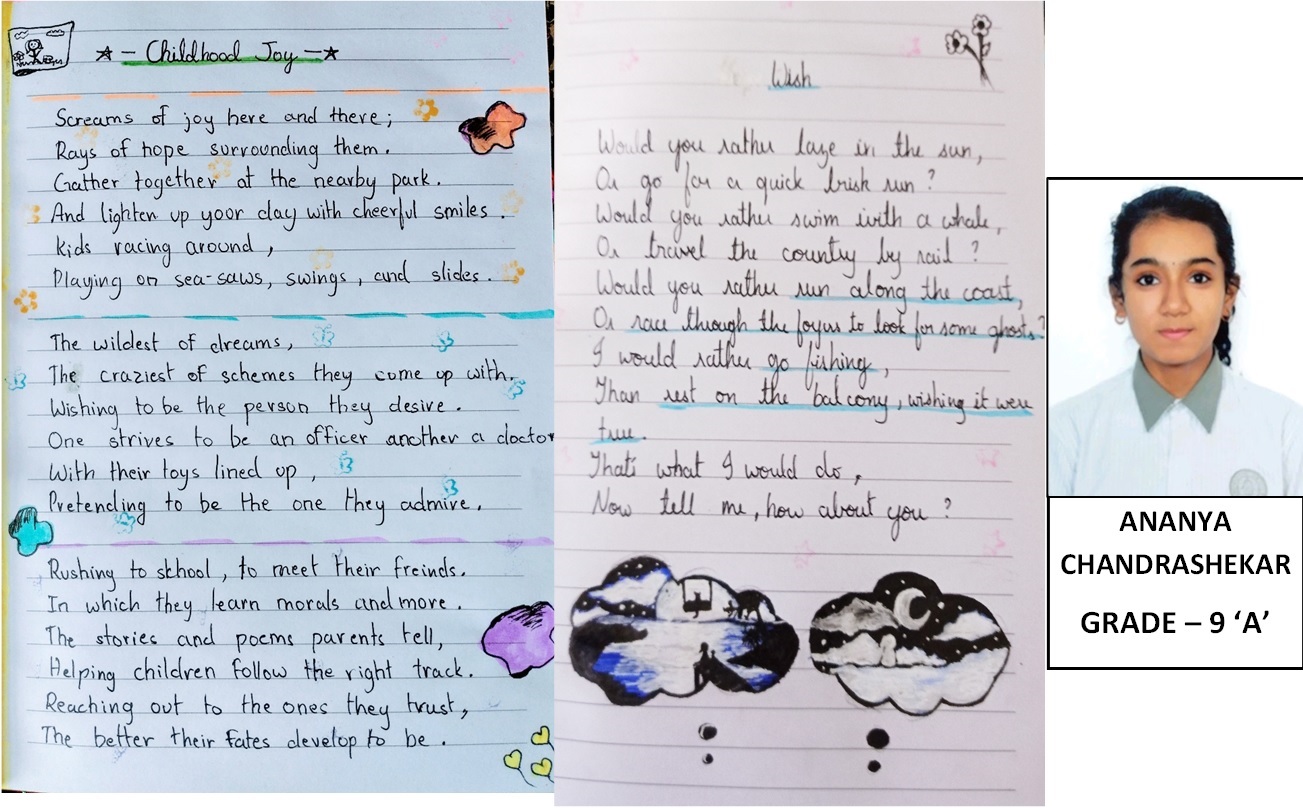 ★ – Childhood Joy – ★
Screams of joy here and there;
Rays of hope surrounding them.
Gather together at the nearby park.
And lighten up your day with cheerful smiles.
Kids racing around,
Playing on sea-saws, swings, and slides.
The wildest of dreams,
The craziest of schemes they come up with.
Wishing to be the person they desire.
One strives to be an officer another a doctor
With their toys lined up,
Pretending to be the one they admire.
Rushing to school, to meet their freinds.
In which they learn morals and more.
The stories and poems parents tell,
Helping children follow the right track.
Reaching out to the ones they trust,
The better their fates develop to be.
Wish
Would you rather laze in the sun,
Or go for a quick brisk run?
Would you rather swim with a whale,
Or travel the country by rail?
Would you rather run along the coast,
Or race through the foyus to look for some ghosts?
I would rather go fishing,
Than rest on the balcony, wishing it were
true.
That's what I would do,
Now tell me, how about you?
ANANYA
CHANDRASHEKAR
GRADE – 9 ‘A’